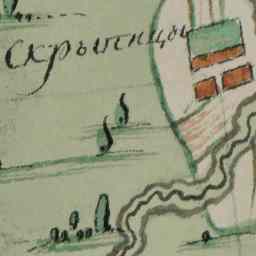 Скрыпицы